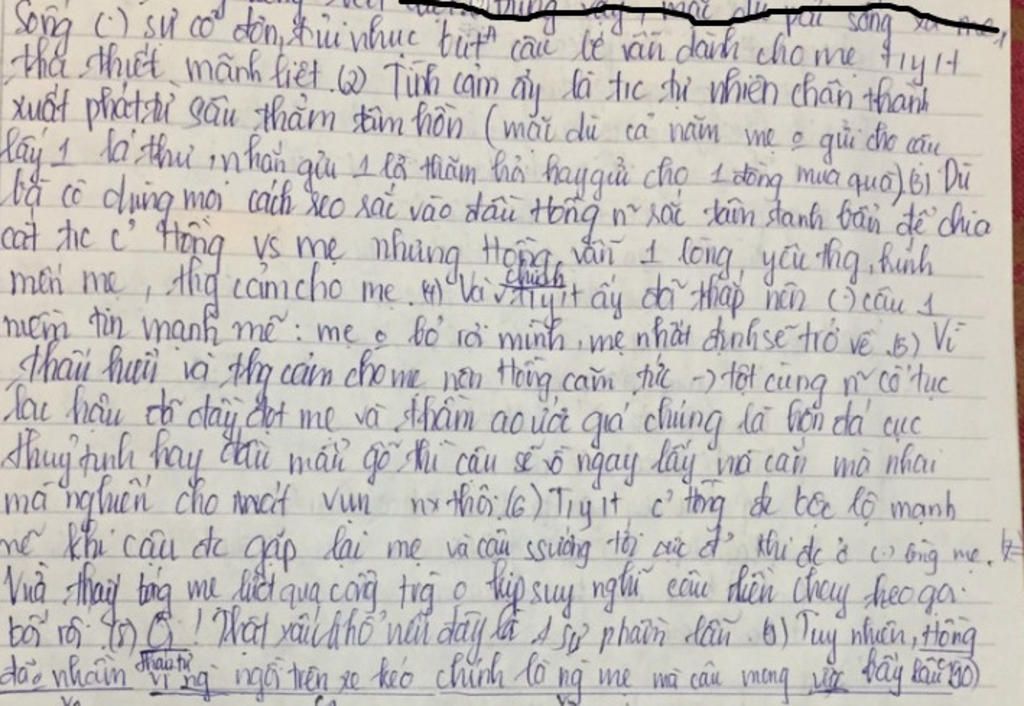 dùng vậy, mặc dù phải sống xa mẹ,
Sống (.) sự cô đơn, tủi nhục bút cậu bé vẫn dành cho mẹ t1y1t
tha thiết mãnh liệt. (2) Tình cảm ấy là t/c tự nhiên chân thành
xuất phát từ sâu thẳm tâm hồn (mặc dù cả năm mẹ o gửi cho cậu
lấy 1 lá thư, nhắn gửi 1 lời thăm hỏi hay gửi cho 1 đồng mua quà) (3) Dù
bà cô dùng mọi cách reo rắc vào đầu Hồng n~ rắc tâm tanh bẩn để chia
cắt t/c c' Hồng vs mẹ nhưng Hồng vẫn 1 lòng yêu thg, kính
mến mẹ, thg cảm cho mẹ. (4) Và chính t1y1t ấy đã thắp nên (.) cậu 1
niềm tin mạnh mẽ: mẹ o bỏ rơi mình, mẹ nhất định sẽ trở về. (5) Vì
thấu hiểu và thg cảm cho mẹ nên Hồng căm tức -> tột cùng n~ cổ tục
lạc hậu đã đày đọt mẹ và thầm ao ước giá chúng là hòn đá cục
thuỷ tinh hay đầu mẩu gỗ thì cậu sẽ vồ ngay lấy mà cắn mà nhai
mà nghiến cho nát vụn mx thôi. (6) T1y1t c' Hồng đc bộc lộ mạnh
mẽ khi cậu đc gặp lại mẹ và cậu ssướng tới cực đ' khi đc ở (.) lòng mẹ.
Vừa thấy bóng mẹ lướt qua cổng trg o kịp suy nghĩ cậu liền chạy theo gọi
bối rối. (8) Ôi! Thật xấu hổ nếu đây là 1 sự nhầm lẫn. (9) Tuy nhiên, Hồng
đã o nhầm vì ng ngồi trên xe kéo chính là ng mẹ mà cậu mong bấy lâu (10)